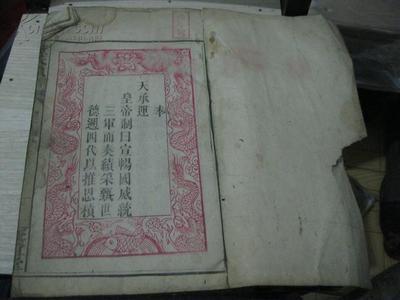 奉
天承運
皇帝制曰宣暢國威統
三軍而奏績采甄世
德遡四代以推恩